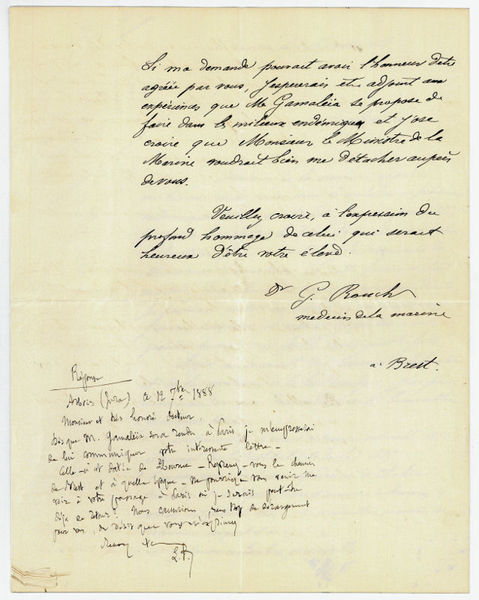 Si ma demande pouvait avoir l'honneur d'être
agréée par vous, j'espererais etre adjoint aux
expériences que Mr Gamaleïa se propose de
faire dans les milieux endémiques et j'ose
croire que Monsieur le Ministre de la
Marine voudrait bien me détacher auprès
de vous.
Veuillez croire, à l'expression du
profond hommage de celui qui serait
heureux d'être votre élève.
Dr G. Rouch
medecin de la marine
à Brest.
Réponse
Arbois (Jura) ce 12 7bre 1888
Monsieur et très honoré docteur,
Dès que M. Gamaleïa sera rendu à Paris je m'empresserai
de lui communiquer votre intéressante lettre.
Celle-ci est datée de
de Brest et à quelle époque - ne pourriez-vous venir me
voir à votre passage à Paris où je serais peut-être
déjà de retour? Nous causerions, sans trop de dérangement
pour vous, du sujet que vous
L.P.